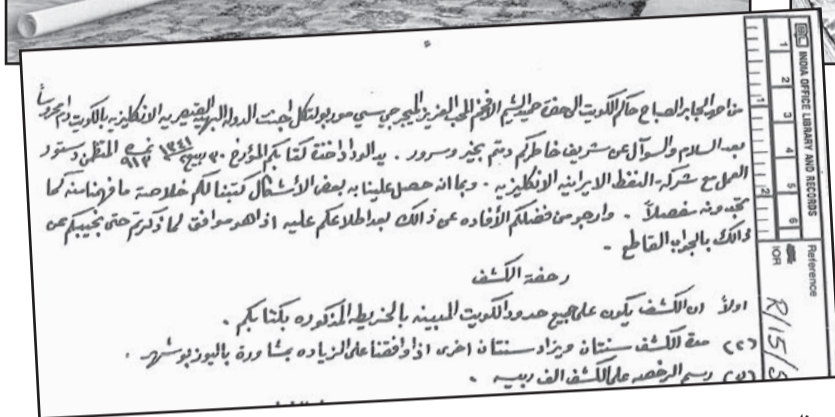 من احمد الجابر الصباح حاكم الكويت الى حضرة حميد الشيم الافخم المحب العزيز الميجر جي سي مور بولتكل اجنت الدولة البهية القيصرية الانكليزيه بالكويت دام محروساً
بعد السلام والسوآل عن شريف خاطركم دمتم بخير وسرور . بيد الوداد اخذت كتابكم المؤرخ ٣٠ ١٣٤١ نمرة ٩١٣ المتضمن دستور
العمل مع شركة النفط الايرانيه الانكليزيه . وبما انه حصل علينا به بعض الأشكال كتبنا لكم خلاصة ما فهمنا منه كما
تجدونه مفصلاً . وارجو من فضلكم الأفاده عن ذالك بعد اطلاعكم عليه اذا هو موافق لما ذكرتم حتى نجيبكم عن
ذالك بالجواب القاطع .
رخصة الكشف
اولاً ان الكشف يكون على جميع حدود الكويت المبينه بالخريطه المذكوره بكتابكم .
(٢) مدة الكشف سنتان ويزاد سنتان اخرى اذا وافقنا على الزياده بمشاورة باليوز بوشهر .
رسم الرخصه على الكشف الف ربيه .
INDIA OFFICE LIBRARY AND RECORDS
1 2 3 4 5 6
1 2
Reference
IOR
R/15/5